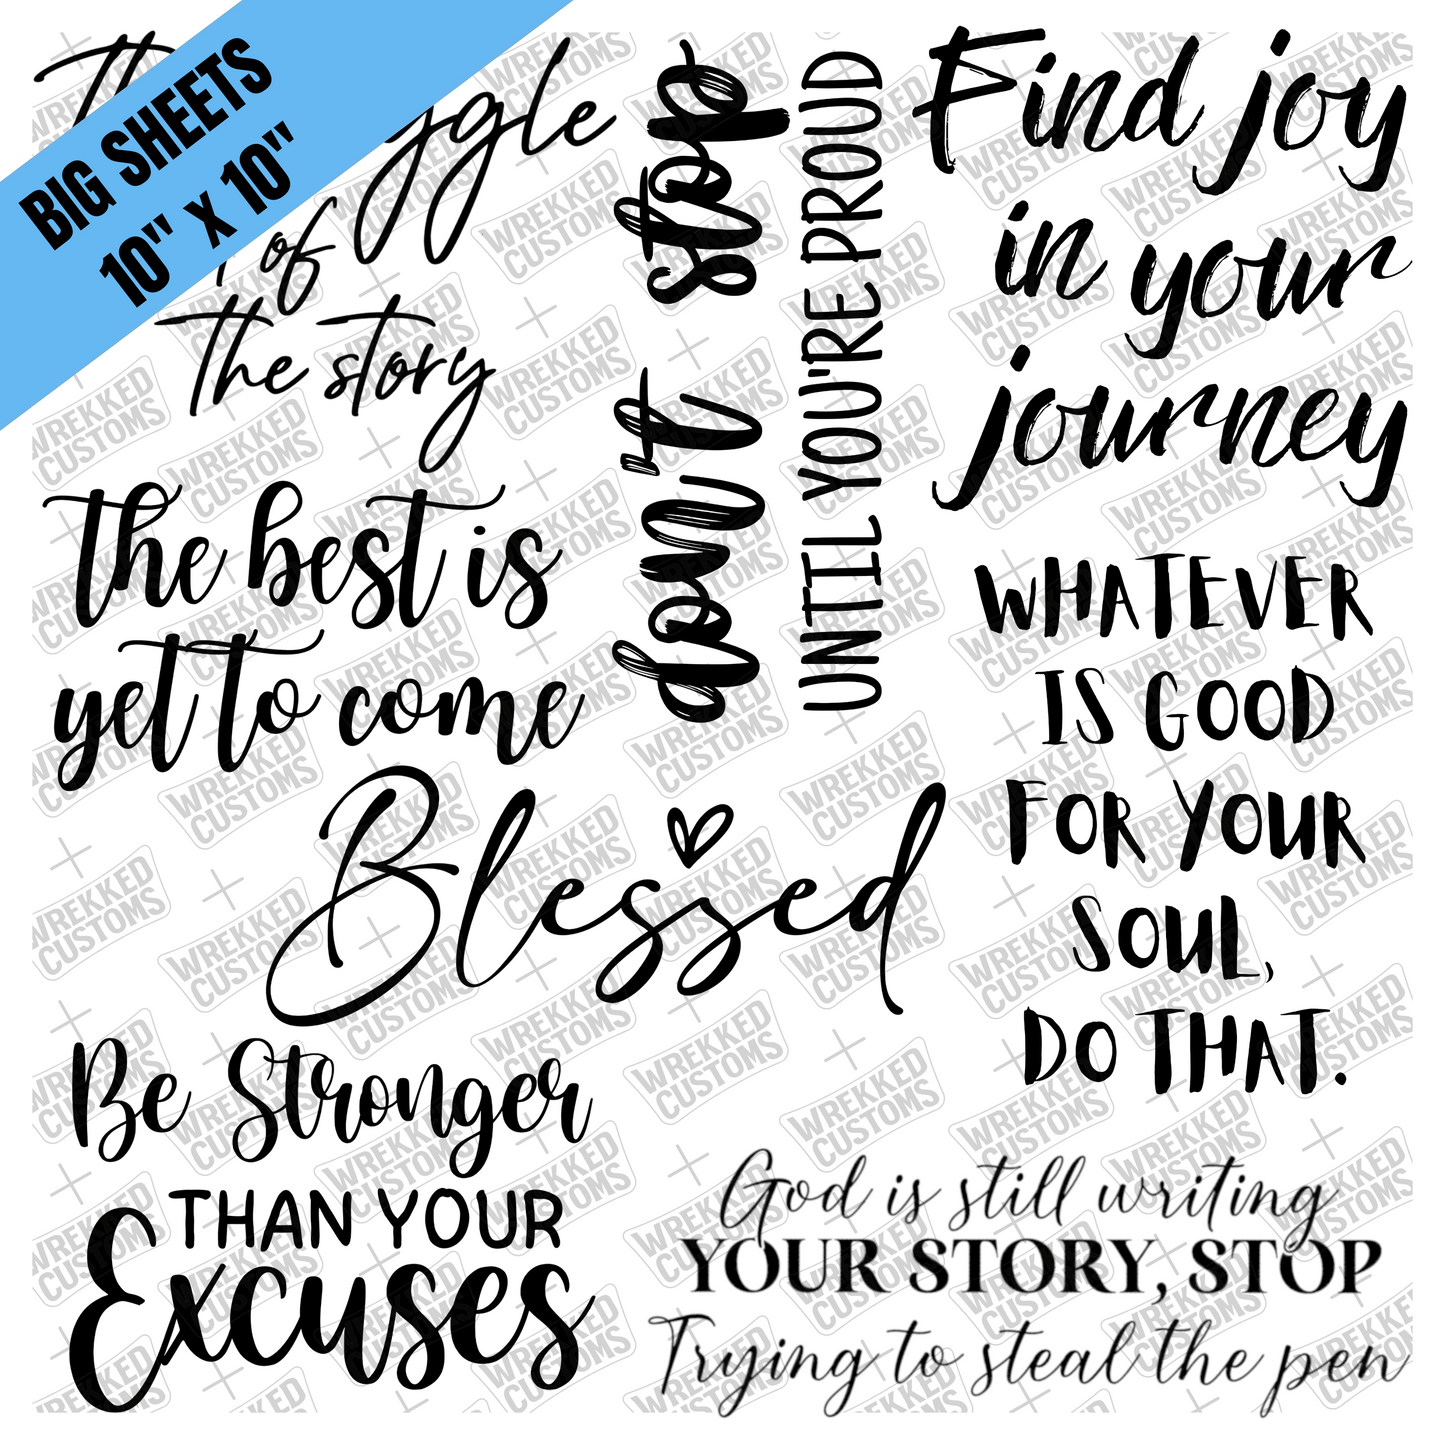 BIG SHEETS
10" X 10"
of
the story
the best is
yet to come
don't stop
UNTIL YOU'RE PROUD
Find joy
in your
journey
WHATEVER
IS GOOD
FOR YOUR
SOUL,
DO THAT.
Blessed
Be Stronger
THAN YOUR
Excuses
God is still writing
YOUR STORY, STOP
Trying to steal the pen
WREKKED
CUSTOMS